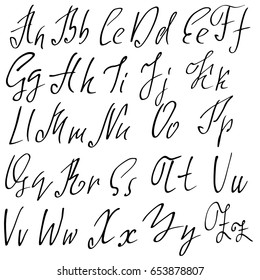 Aa Bb Cc Dd Ee Ff
Gg Hh Ii Jj Kk
Ll Mm Nn Oo Pp
Qq Rr Ss Tt Uu
Vv Ww Xx Yy Zz
shutterstock.com · 653878807